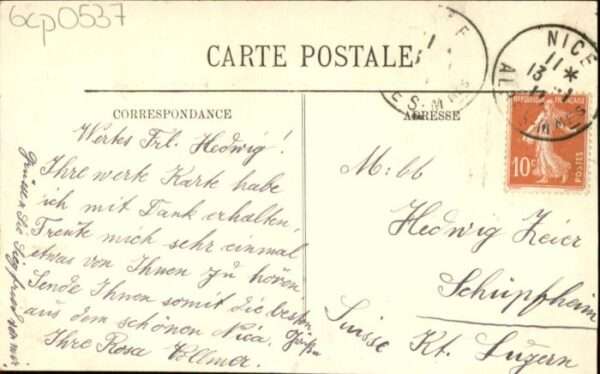 6cp0537
CARTE POSTALE
CORRESPONDANCE
ADRESSE
NICE
11 *
13
REPUBLIQUE FRANÇAISE
10c
POSTES
Wertes Frl. Hedwig!
Ihre werte Karte habe
ich mit Dank erhalten,
Freute mich sehr einmal
etwas von Ihnen zu hören
Sende Ihnen somit die besten
Grüsse
aus dem schönen Nica.
Ihre Rosa Vollmer.
Siegfried
Hedwig Zeier
Schüpfheim
Kt. Luzern
Suisse